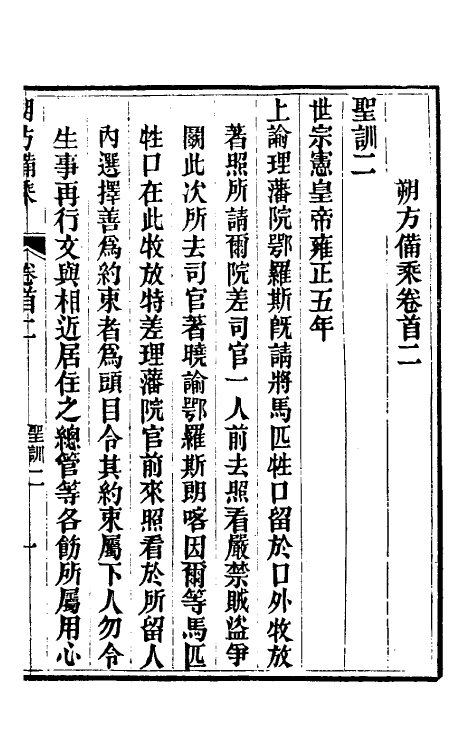 朔方備乘卷首二
聖訓二
世宗憲皇帝雍正五年
上諭理藩院鄂羅斯旣請將馬匹牲口留於口外牧放
著照所請爾院差司官一人前去照看嚴禁賊盜爭
鬬此次所去司官著曉諭鄂羅斯朗喀因爾等馬匹
牲口在此牧放特差理藩院官前來照看於所留人
內選擇善爲約束者爲頭目令其約束屬下人勿令
生事再行文與相近居住之總管等各飭所屬用心
朔方備乘
卷首二
聖訓二
一